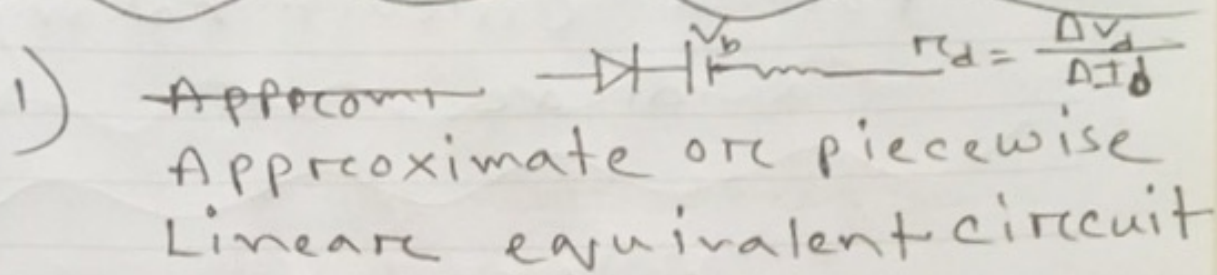 1) V_b r_d = ΔV_d / ΔI_d
Approximate or piecewise
Linear equivalent circuit